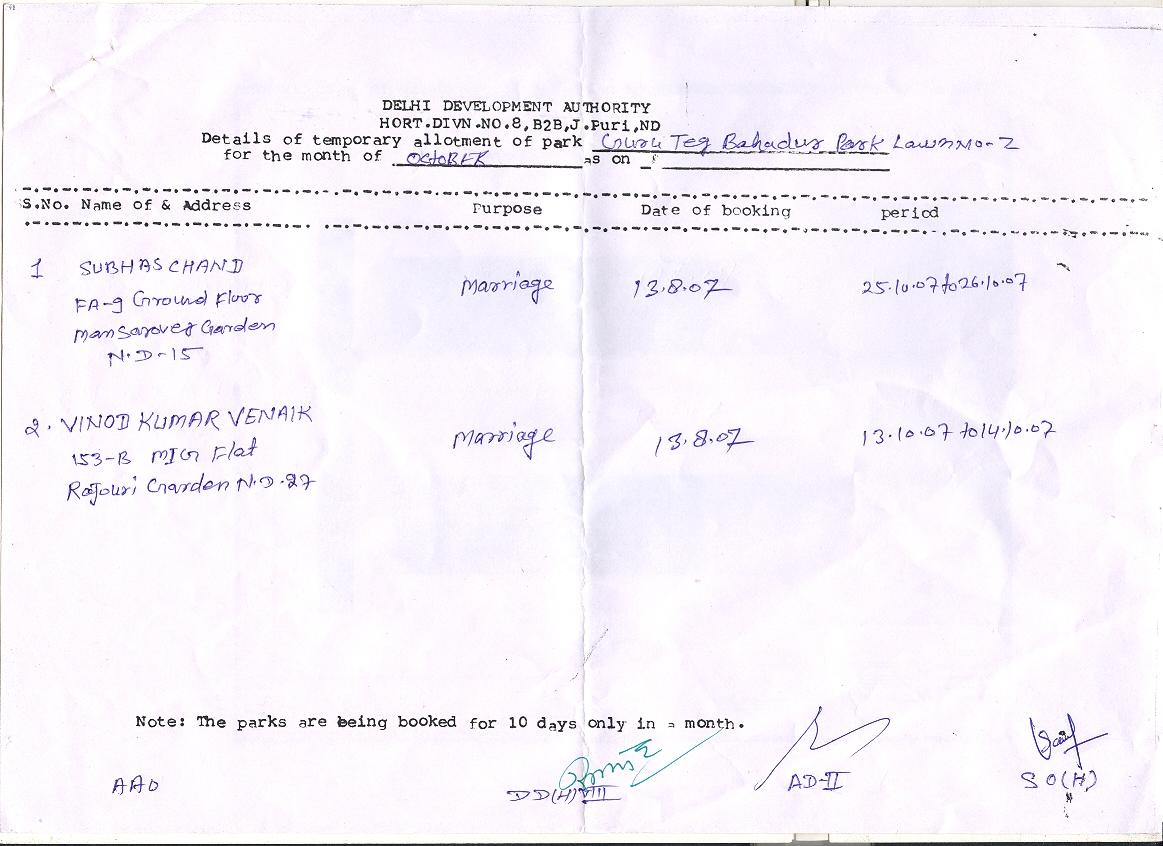 DELHI DEVELOPMENT AUTHORITY
HORT.DIVN.NO.8,B2B,J.Puri,ND
Details of temporary allotment of park Guru Teg Bahadur Park Lawn No-2
for the month of OCTOBER as on
S.No. Name of & Address Purpose Date of booking period
1 SUBHAS CHAND Marriage 13.8.07 25.10.07 to 26.10.07
FA-9 Ground Floor
Mansarover Garden
N.D-15
2. VINOD KUMAR VENAIK Marriage 13.8.07 13.10.07 to 14.10.07
153-B MIG Flat
Rajouri Garden N.D-27
Note: The parks are being booked for 10 days only in a month.
AAO DD(H)VIII AD-II SO(H)